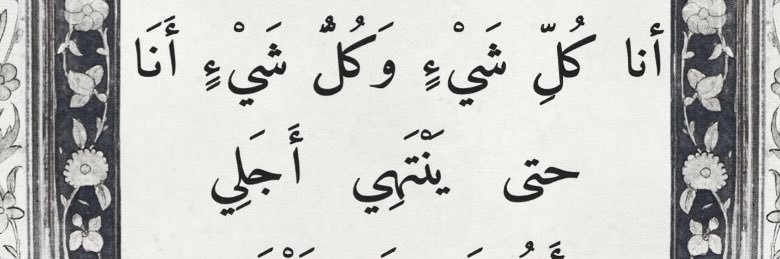 أنا كُلِّ شَيْءٍ وَكُلٌّ شَيْءٍ أَنَا
حتى يَنْتَهِي أَجَلِي